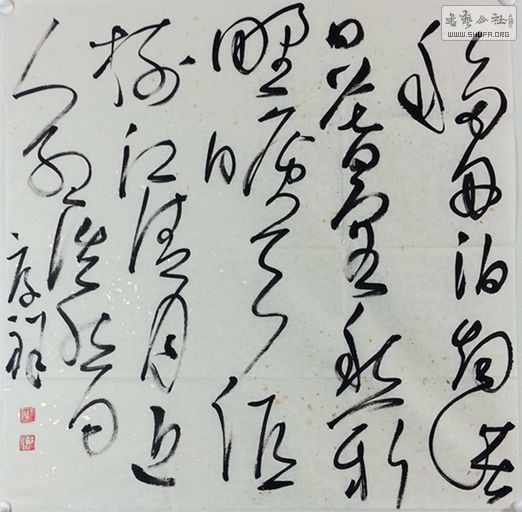 書藝公社
WWW.SHUFA.ORG
移舟泊烟渚
日暮客愁新
野曠天低
树江清月近
人孟浩然句